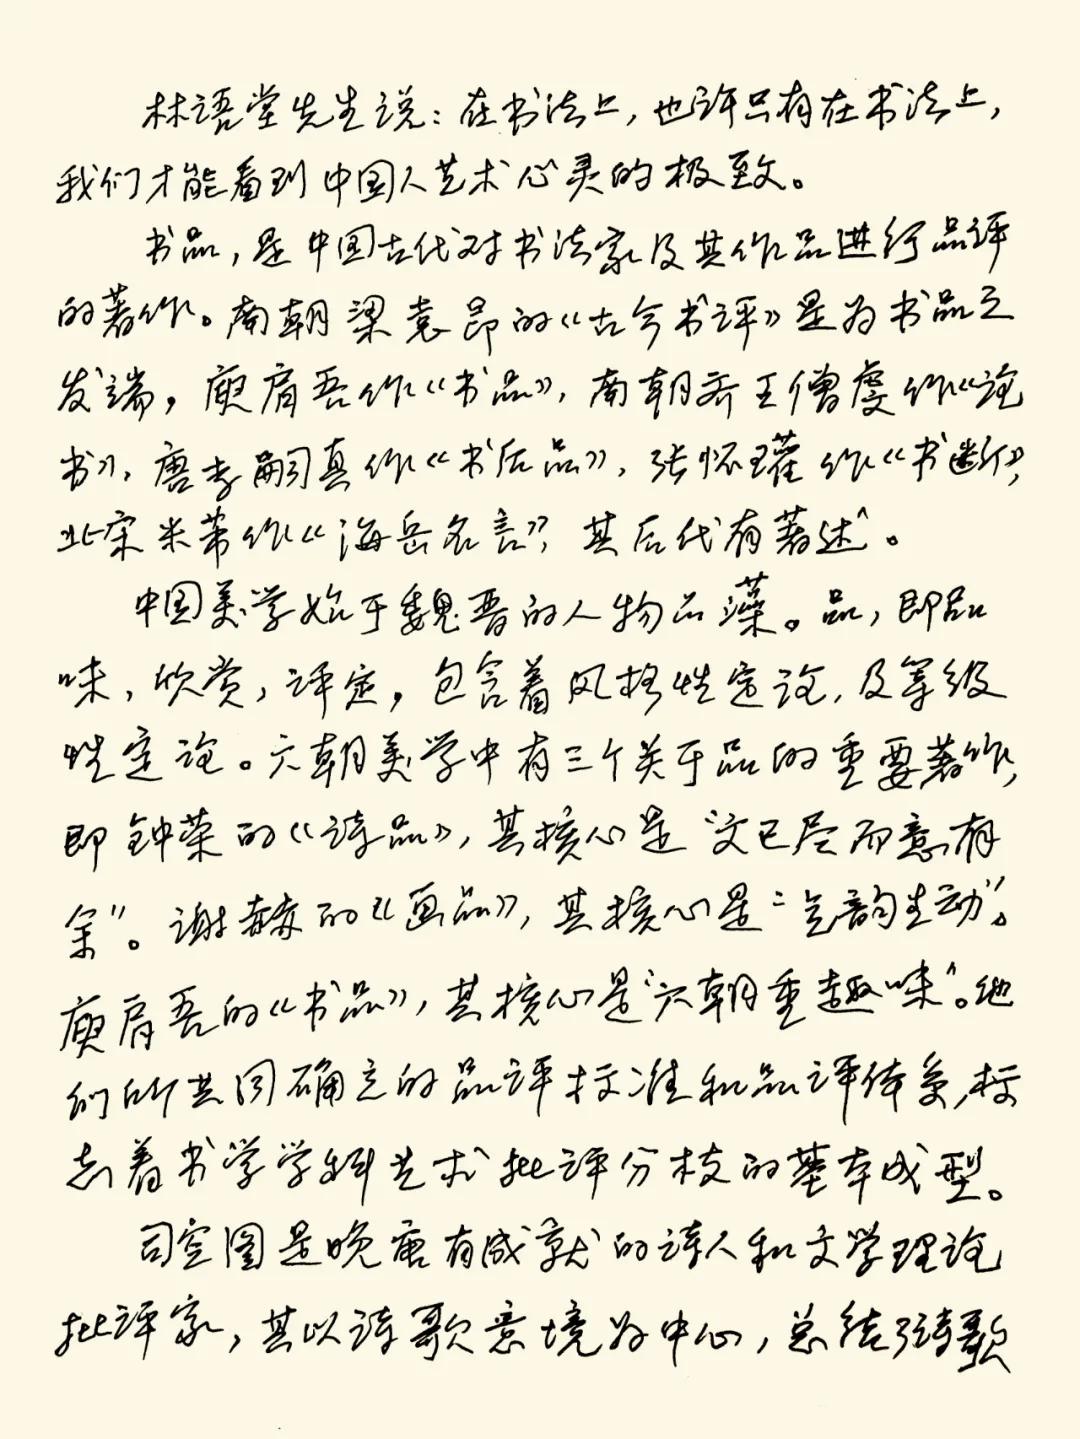 林语堂先生说：在书法上，也许只有在书法上，
我们才能看到中国人艺术心灵的极致。
书品，是中国古代对书法家及其作品进行品评
的著作。南朝梁袁昂的《古今书评》是为书品之
发端，庾肩吾作《书品》，南朝齐王僧虔作《论
书》，唐李嗣真作《书后品》，张怀瓘作《书断》，
北宋米芾作《海岳名言》，其后代有著述。
中国美学始于魏晋的人物品藻。品，即品
味，欣赏，评定，包含着风格性定论，及等级
性定论。六朝美学中有三个关于品的重要著作，
即钟荣的《诗品》，其核心是“文已尽而意有
余”。谢赫的《画品》，其核心是“气韵生动”。
庾肩吾的《书品》，其核心是“六朝重趣味”。他
们所共同确立的品评标准和品评体系，标
志着书学学科艺术批评分枝的基本成型。
司空图是晚唐有成就的诗人和文学理论
批评家，其以诗歌意境为中心，总结了诗歌